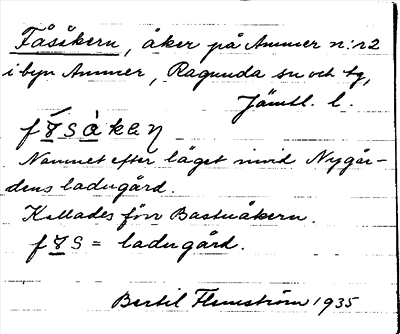 Fåsåkern, åker på Ammer n:r 2
i byn Ammer, Ragunda sn och tg,
Jämtl. l.
Namnet efter läget invid Nygår-
dens ladugård.
Kallades förr Bastuåkern.
= ladugård.
Bertil Flemström 1935